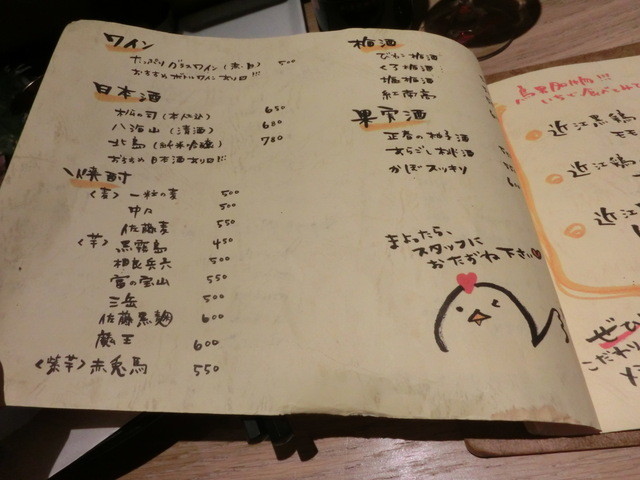 ワイン
たっぷりグラスワイン(赤・白) 500
おすすめボトルワイン有り!!!
日本酒
松の司(本仕込) 650
八海山(清酒) 680
北島(純米吟醸) 780
おすすめ日本酒有り!!!
焼酎
〈麦〉一粒の麦 500
中々 500
佐藤麦 550
〈芋〉黒霧島 450
相良兵六 500
富の宝山 550
三岳 500
佐藤黒麹 600
魔王 600
〈紫芋〉赤兎馬 550
梅酒
びわ梅酒
くろ梅酒
紅南高
果実酒
あらごし桃酒
かぼスッキリ
まよったら、
スタッフに
おたずね下さい
近江黒鶏
近江鶏
近江
ぜひ
こだわり